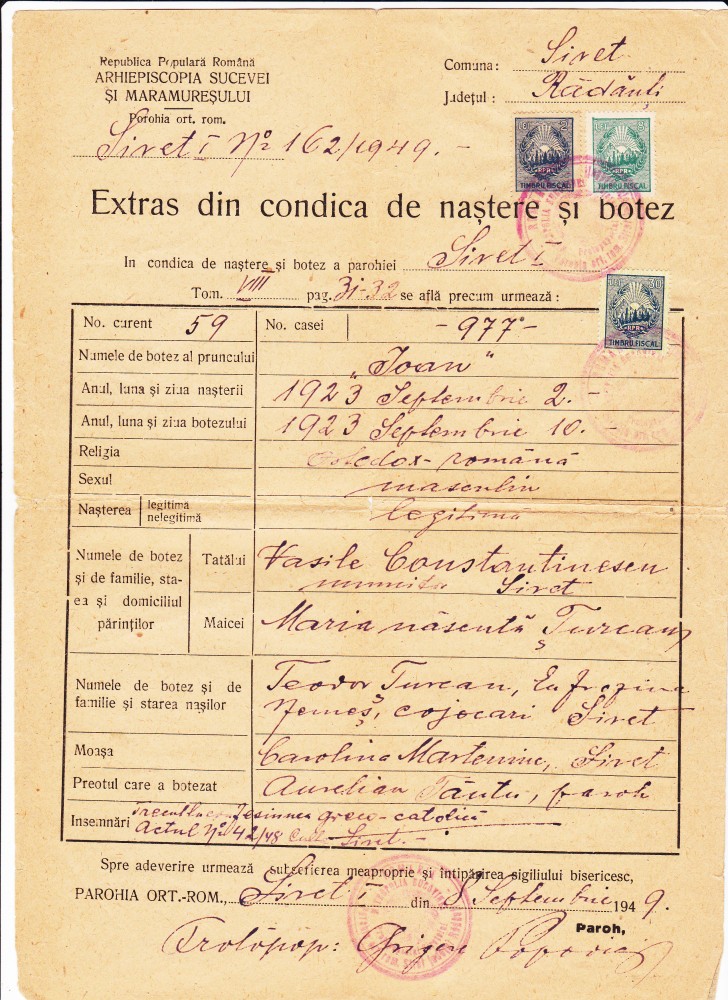 Republica Populară Română
ARHIEPISCOPIA SUCEVEI
ȘI MARAMUREȘULUI
Porohia ort. rom.
Siret I Nº 162/1949.-
Comuna: Siret
Județul: Rădăuți
LEI 2
RPR
TIMBRU FISCAL
LEI 8
RPR
TIMBRU FISCAL
Extras din condica de naștere și botez
In condica de naștere și botez a parohiei Siret I
Tom. VIII pag. 31-32 se află precum urmează:
30
RPR
TIMBRU FISCAL
No. curent 59 No. casei -977-
Numele de botez al pruncului „Ioan"
Anul, luna și ziua nașterii 1923 Septembrie 2.-
Anul, luna și ziua botezului 1923 Septembrie 10.-
Religia ortodox-română
Sexul masculin
Nașterea legitimă nelegitimă legitimă
Numele de botez și de familie, starea și domiciliul părinților
Tatălui Vasile Constantinescu
Siret
Maicei Maria născută Țurcan
Numele de botez și de familie și starea nașilor
Teodor Țurcan, Eufrozina
Nemeș, cojocari Siret
Moașa Carolina Martemiuc, Siret
Preotul care a botezat Aurelian Tăutu, paroh
Insemnări greco-catolică
Actul Nº 42/48 Siret.-
Spre adeverire urmează subscrierea meaproprie și intipărirea sigiliului bisericesc,
PAROHIA ORT.-ROM., Siret I din 8 Septembrie 1949.
Paroh,
Protopop: Grigore Popovici